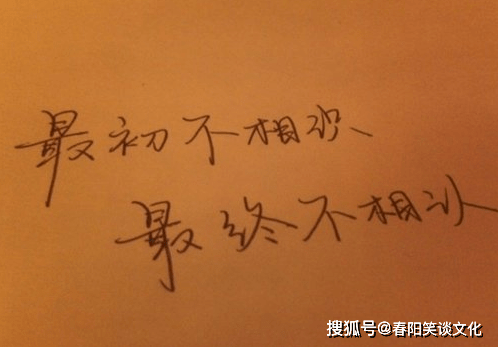 最初不相识
最终不相认
搜狐号@春阳笑谈文化